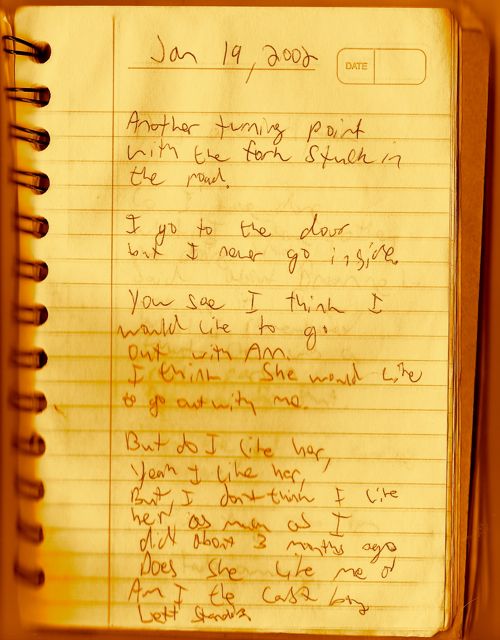 Jan 19, 2002
DATE
Another turning point
with the fork stuck in
the road.
I go to the door
but I never go inside.
You see I think I
would like to go
out with Am.
I think she would like
to go out with me.
But do I like her,
Yeah I like her,
But I don't think I like
her as much as I
did about 3 months ago
Does she like me or
Am I the last boy
Left standing